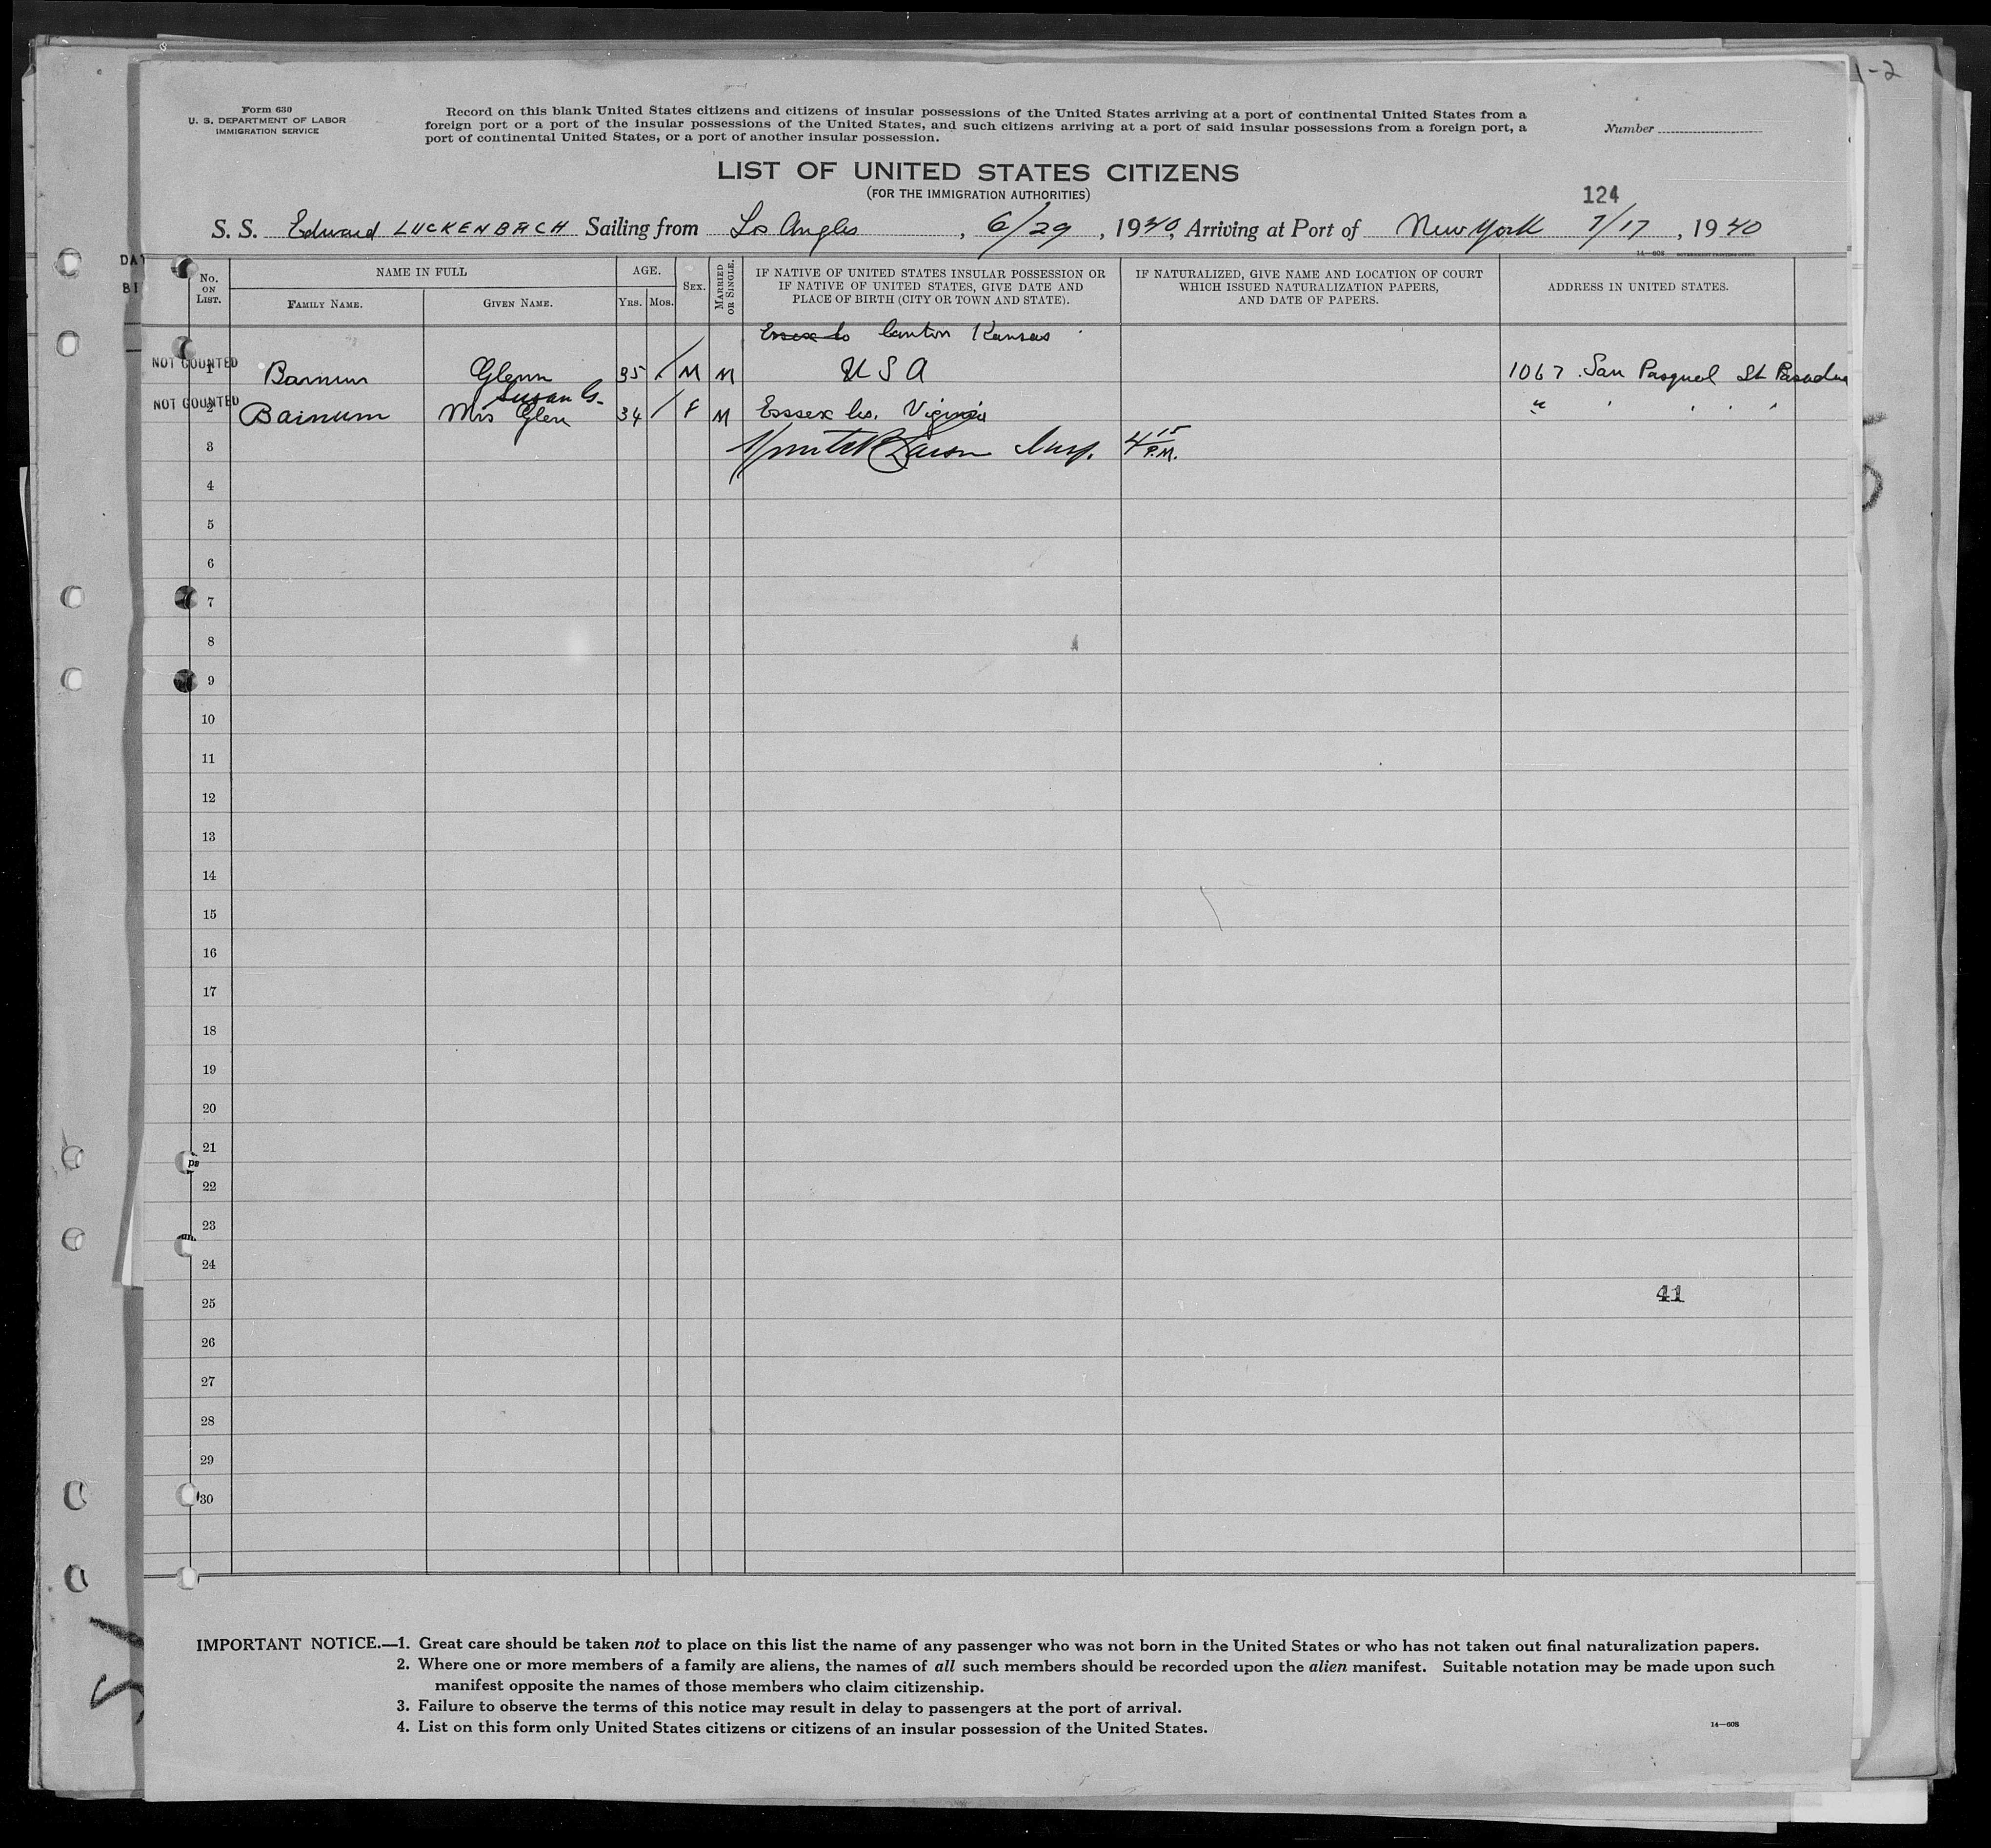 1-2
Form 630
U. S. DEPARTMENT OF LABOR
IMMIGRATION SERVICE
Record on this blank United States citizens and citizens of insular possessions of the United States arriving at a port of continental United States from a
foreign port or a port of the insular possessions of the United States, and such citizens arriving at a port of said insular possessions from a foreign port, a
port of continental United States, or a port of another insular possession.
Number
LIST OF UNITED STATES CITIZENS
(FOR THE IMMIGRATION AUTHORITIES)
124
S. S. Edward LUCKENBACH Sailing from Los Angles, 6/29, 1940, Arriving at Port of New York 7/17, 1940
14—608 GOVERNMENT PRINTING OFFICE
No. ON LIST.
NAME IN FULL
FAMILY NAME.
GIVEN NAME.
AGE.
YRS. MOS.
SEX.
MARRIED OR SINGLE.
IF NATIVE OF UNITED STATES INSULAR POSSESSION OR
IF NATIVE OF UNITED STATES, GIVE DATE AND
PLACE OF BIRTH (CITY OR TOWN AND STATE).
IF NATURALIZED, GIVE NAME AND LOCATION OF COURT
WHICH ISSUED NATURALIZATION PAPERS,
AND DATE OF PAPERS.
ADDRESS IN UNITED STATES.
Essex Co Canton Kansas
NOT COUNTED 1 Barnum Glenn 35 / M M U S A 1067 San Pasqual St Pasadena
Susan G.
NOT COUNTED 2 Barnum Mrs Glen 34 / F M Esssex Co. Viginia " ' ' ' '
3 Insp. 4 15 P.M.
4
5
6
7
8
9
10
11
12
13
14
15
16
17
18
19
20
21
22
23
24
25 41
26
27
28
29
30
IMPORTANT NOTICE.—1. Great care should be taken not to place on this list the name of any passenger who was not born in the United States or who has not taken out final naturalization papers.
2. Where one or more members of a family are aliens, the names of all such members should be recorded upon the alien manifest. Suitable notation may be made upon such
manifest opposite the names of those members who claim citizenship.
3. Failure to observe the terms of this notice may result in delay to passengers at the port of arrival.
4. List on this form only United States citizens or citizens of an insular possession of the United States.
14—608